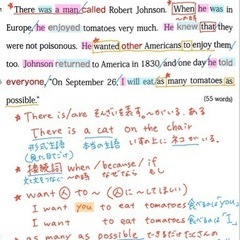 "There was a man called Robert Johnson. When he was in
～の時
Europe, he enjoyed tomatoes very much. He knew that they
were not poisonous. He wanted other Americans to enjoy them,
too. Johnson returned to America in 1830 and one day he told
everyone, "On September 26, I will eat as many tomatoes as
possible."
(55 words)
* There is/are そんざいを表す。～がいる、ある
There is a cat on the chair
形式主語 本当の主語 いすの上にネコがいる。
(見た目だけ)
* 接続詞 when / because / if
～の時 なぜなら もし
* want 人 to ～ (人に～してほしい)
I want you to eat tomatoes 食べるのはyou
I want to eat tomatoes 食べるのは「I」
* as many as possible できるだけたくさんの